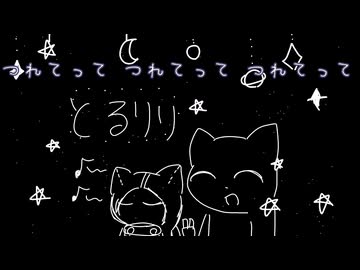 つれてって つれてって つれてって
とるりり